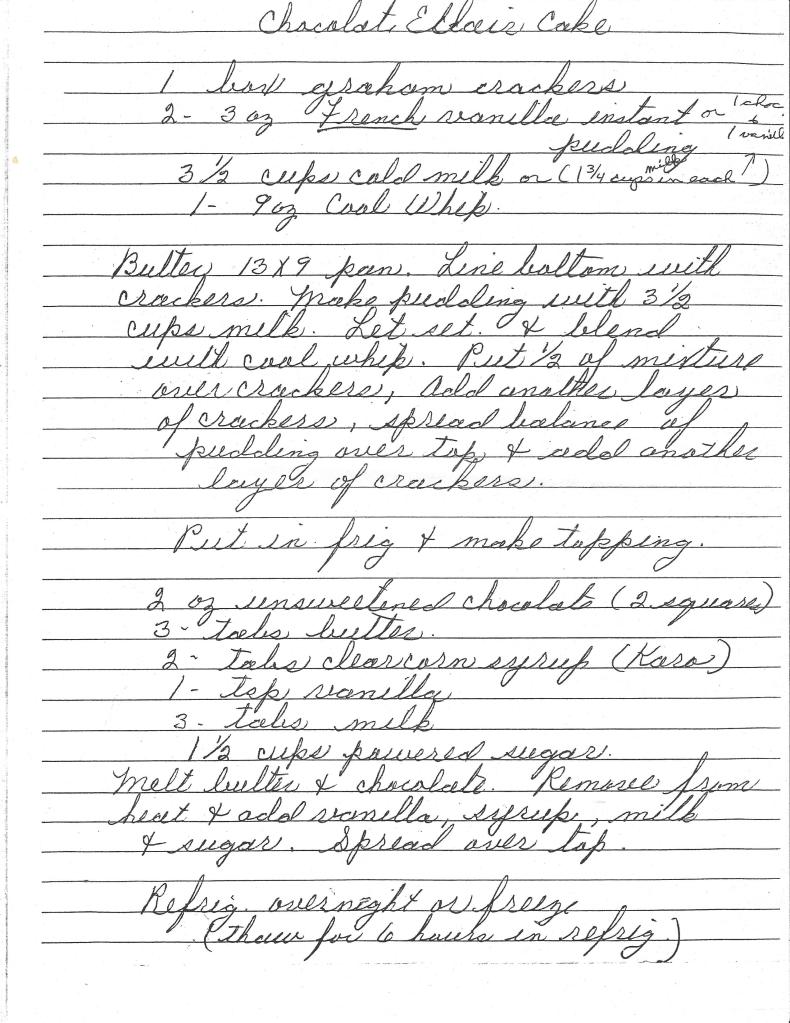 Chocolate Eclair Cake
1 box graham crackers
2 - 3 oz French vanilla instant or 1 choc & 1 vanill
pudding
3 1/2 cups cold milk or (1 3/4 cups milk in each ↑)
1 - 9 oz Cool Whip.
Butter 13 X 9 pan. Line bottom with
crackers. Make pudding with 3 1/2
cups milk. Let set. & blend
with cool whip. Put 1/2 of mixture
over crackers, add another layer
of crackers, spread balance of
pudding over top & add another
layer of crackers.
Put in frig & make topping.
2 oz unsweetened chocolate (2 squares)
3 - tabs butter.
2 - tabs clear corn syrup (Karo)
1 - tsp vanilla
3 - tabs milk
1 1/2 cups powered sugar.
Melt butter & chocolate. Remove from
heat & add vanilla, syrup, milk
& sugar. Spread over top.
Refrig. overnight or freeze
(thaw for 6 hours in refrig.)